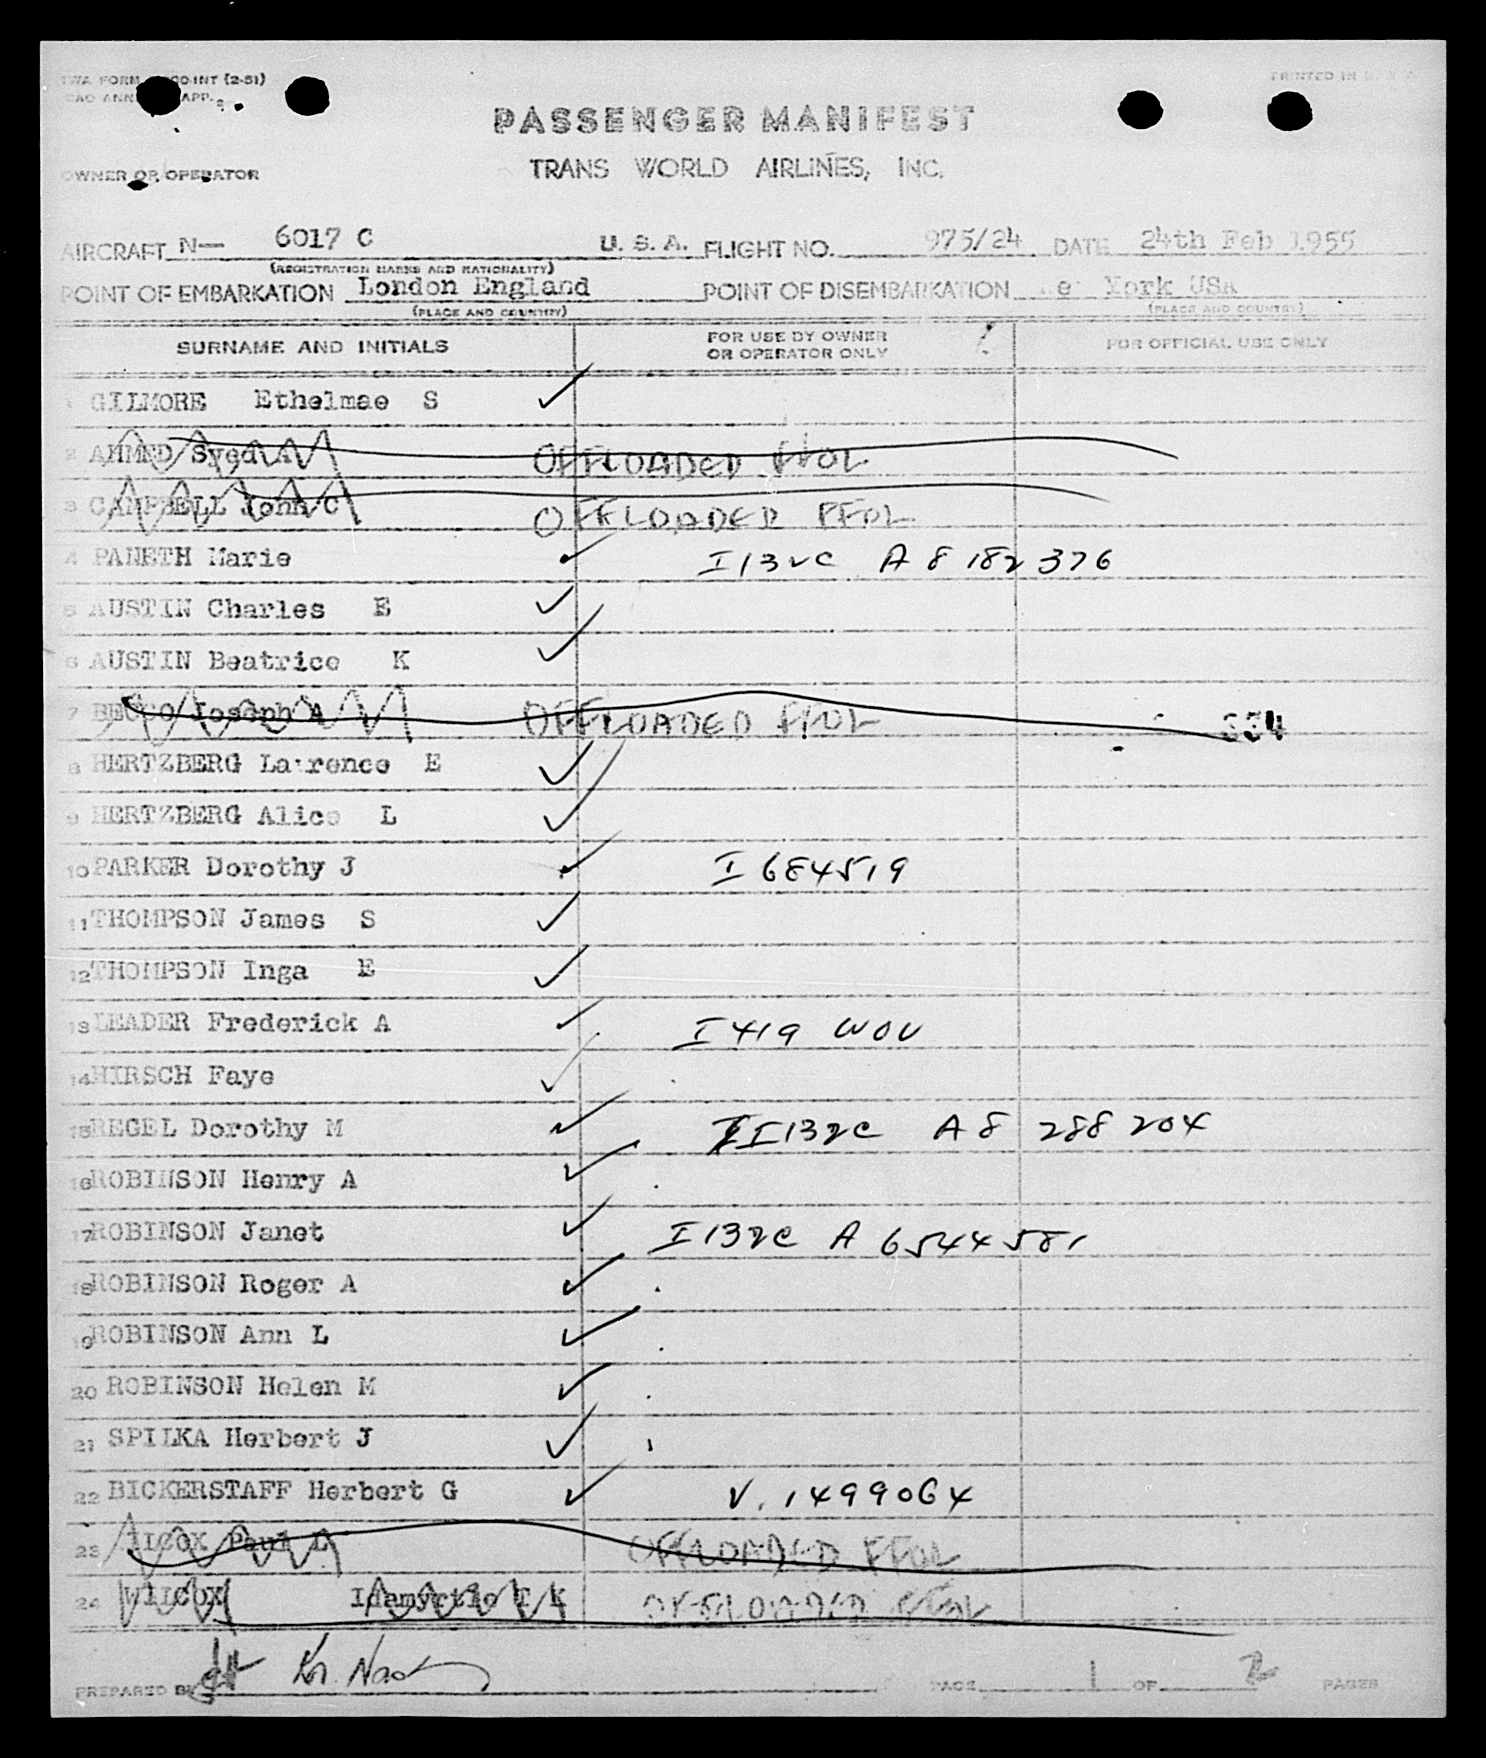 TWA FORM INT (2-51)
PRINTED IN U.S.A.
APP.
PASSENGER MANIFEST
OWNER OR OPERATOR TRANS WORLD AIRLINES, INC.
AIRCRAFT N— 6017 C U. S. A. FLIGHT NO. 975/24 DATE 24th Feb 1955
(REGISTRATION MARKS AND NATIONALITY)
POINT OF EMBARKATION London England POINT OF DISEMBARKATION York USA
(PLACE AND COUNTRY) (PLACE AND COUNTRY)
SURNAME AND INITIALS FOR USE BY OWNER OR OPERATOR ONLY FOR OFFICIAL USE ONLY
1 GILMORE Ethelmae S ✓
2 AHMED Syed A OFFLOADED FFOL
3 CAMPBELL John C OFFLOADED FFOL
4 PANETH Marie ✓ I 132C A 8 182 376
5 AUSTIN Charles E ✓
6 AUSTIN Beatrice K ✓
7 BECCO Joseph A OFFLOADED FFOL 334
8 HERTZBERG Lawrence E ✓
9 HERTZBERG Alice L ✓
10 PARKER Dorothy J ✓ I 684519
11 THOMPSON James S ✓
12 THOMPSON Inga E ✓
13 LEADER Frederick A ✓ I 419 WOV
14 HIRSCH Faye ✓
15 REGEL Dorothy M ✓ I I132C A8 288 204
16 ROBINSON Henry A ✓
17 ROBINSON Janet ✓ I 132C A 6544581
18 ROBINSON Roger A ✓
19 ROBINSON Ann L ✓
20 ROBINSON Helen M ✓
21 SPILKA Herbert J ✓
22 BICKERSTAFF Herbert G ✓ V. 1499064
23 WILCOX Paul L OFFLOADED FFOL
24 WILCOX Idamyrtle T K OFFLOADED FFOL
PREPARED BY PAGE 1 OF 2 PAGES